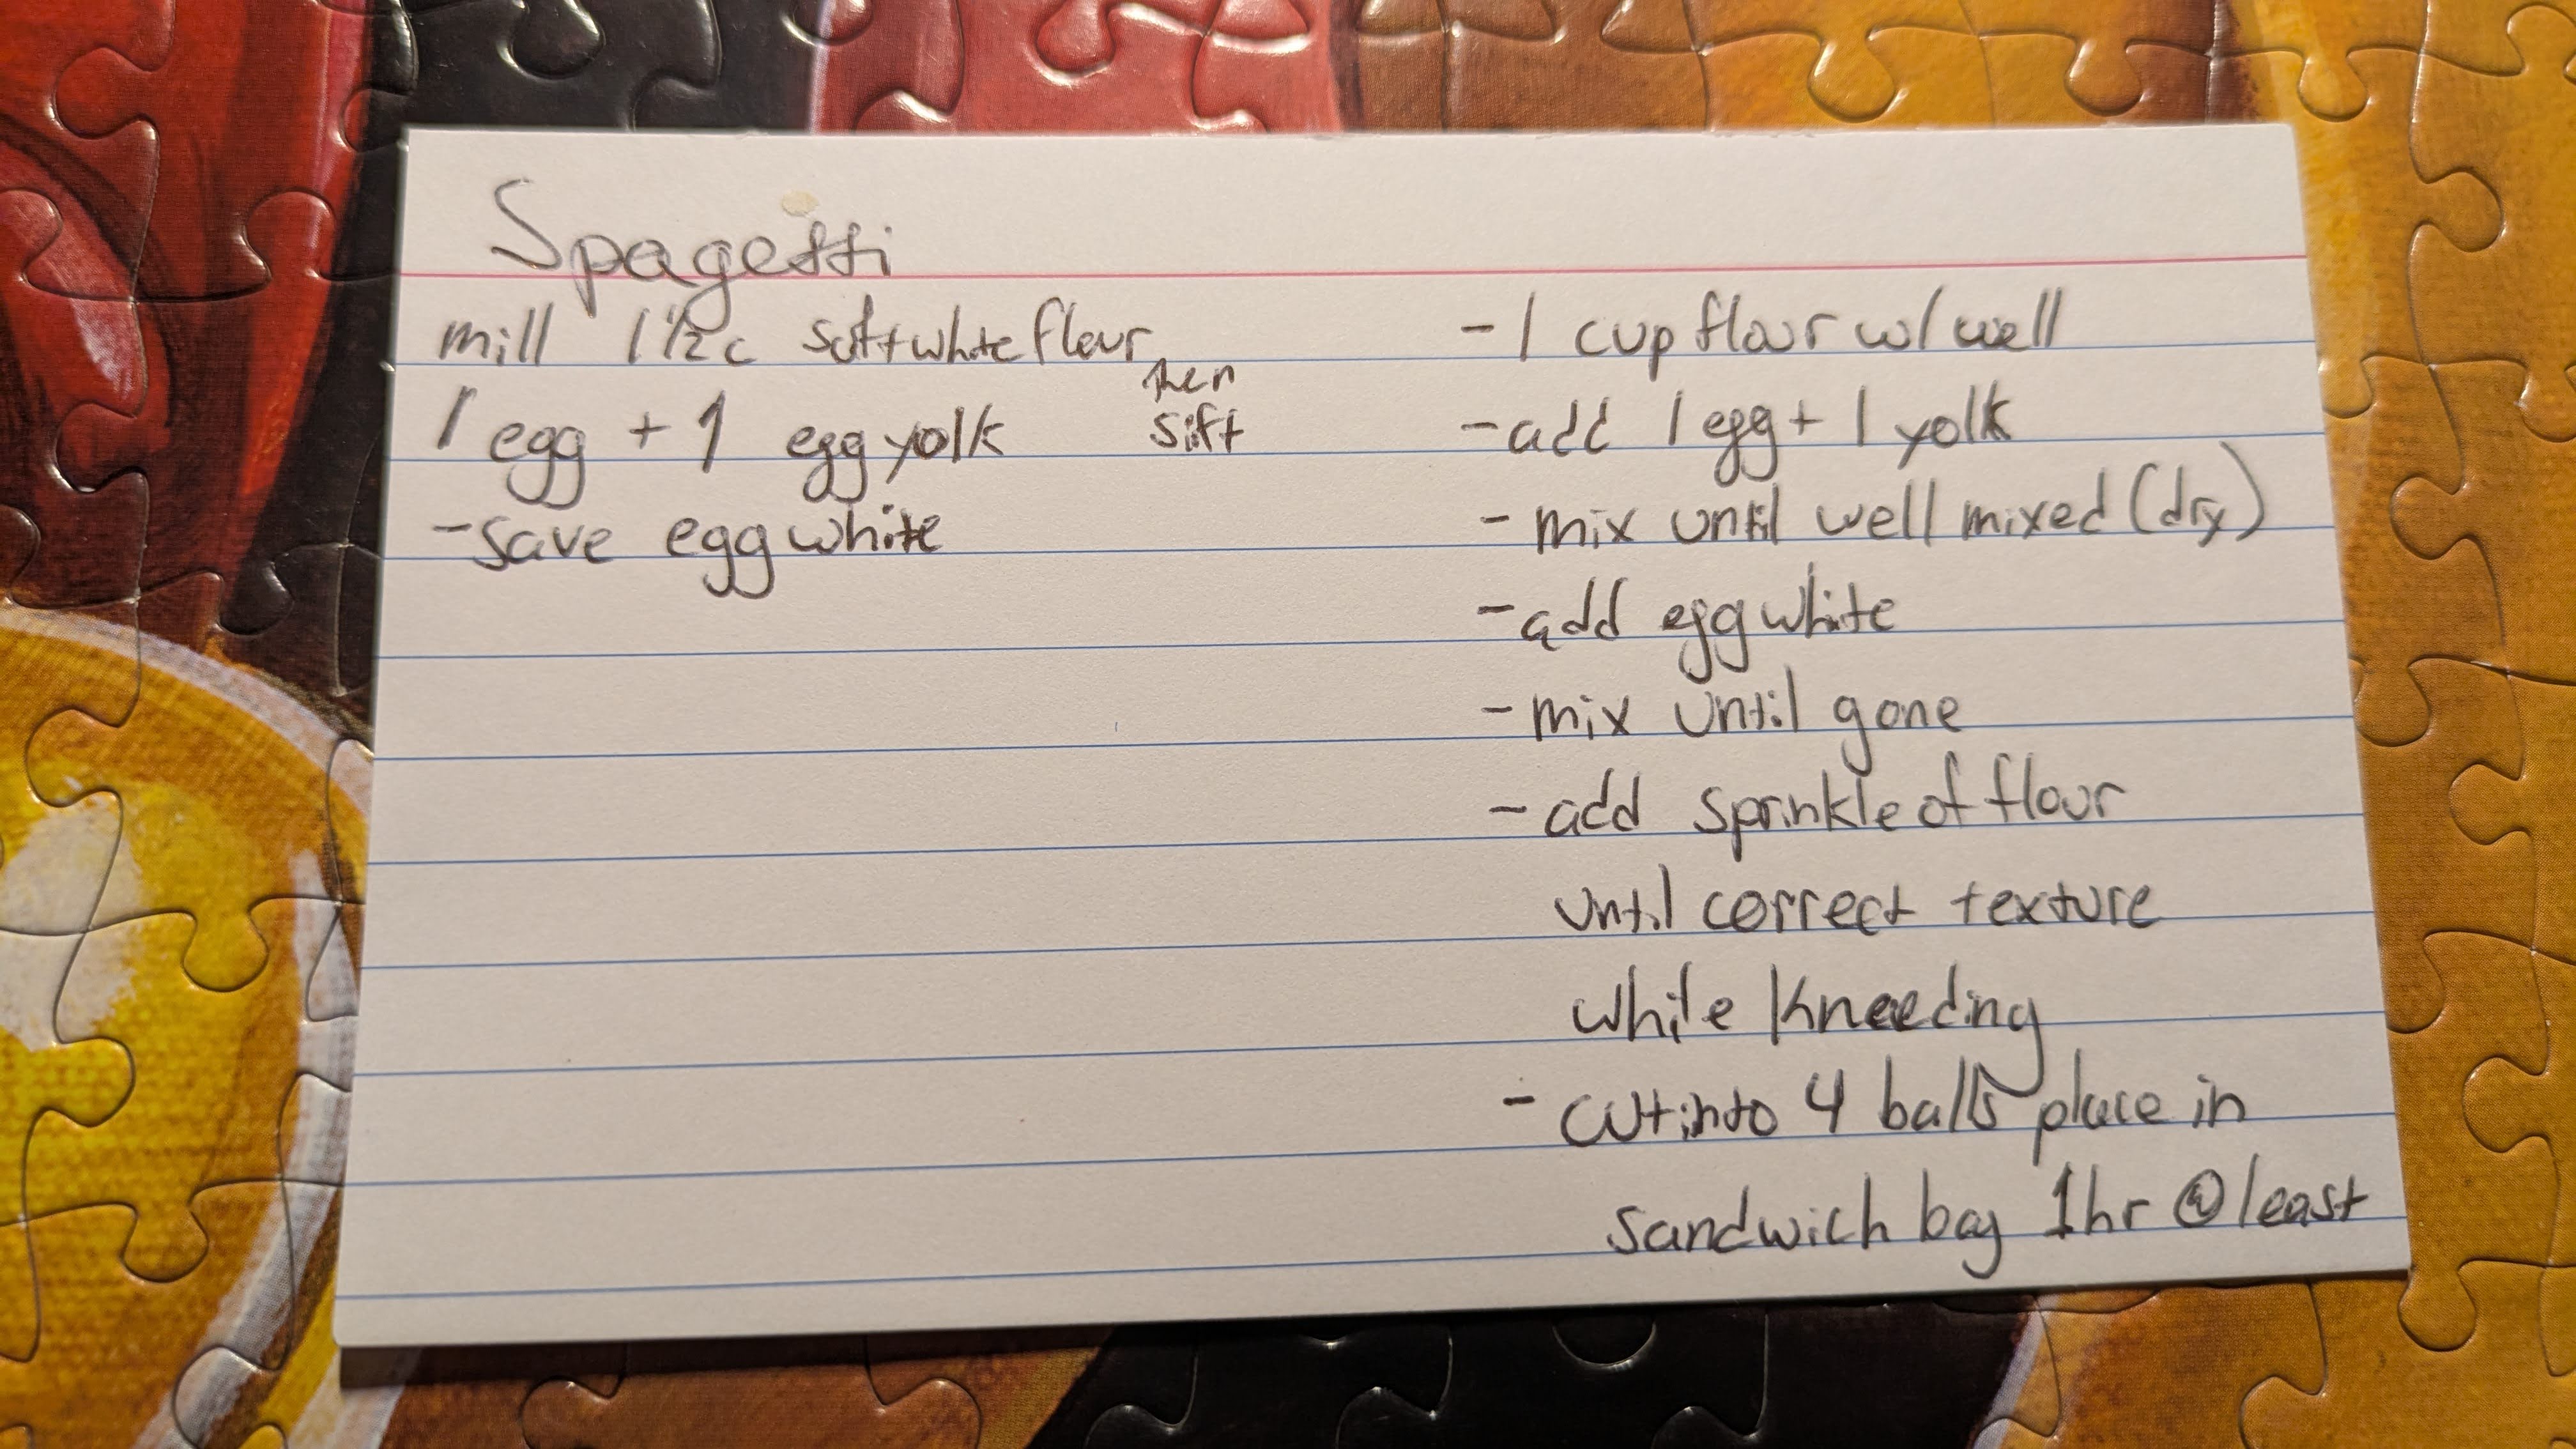 Spagetti
mill 1 1/2 c soft white flour
then
sift
1 egg + 1 egg yolk
- save egg white
- 1 cup flour w/ well
- add 1 egg + 1 yolk
- mix until well mixed (dry)
- add egg white
- mix until gone
- add sprinkle of flour
until correct texture
while kneeding
- cut into 4 balls place in
sandwich bag 1hr @least